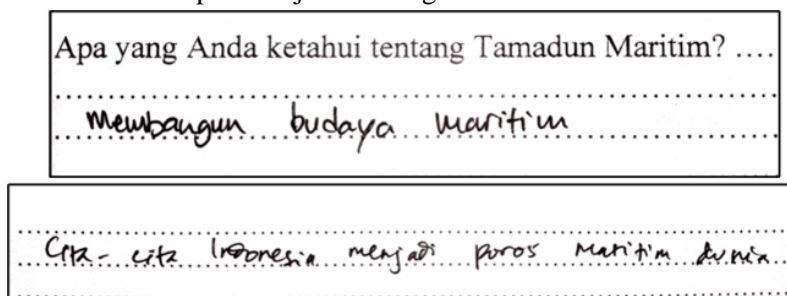 Apa yang Anda ketahui tentang Tamadun Maritim? ....
Membangun budaya maritim
Cita-cita Indonesia menjadi poros maritim dunia